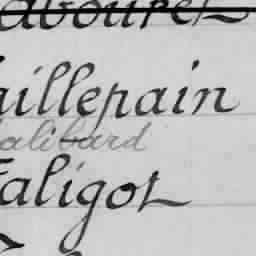 abourel
aillepain
alibard
Faligot